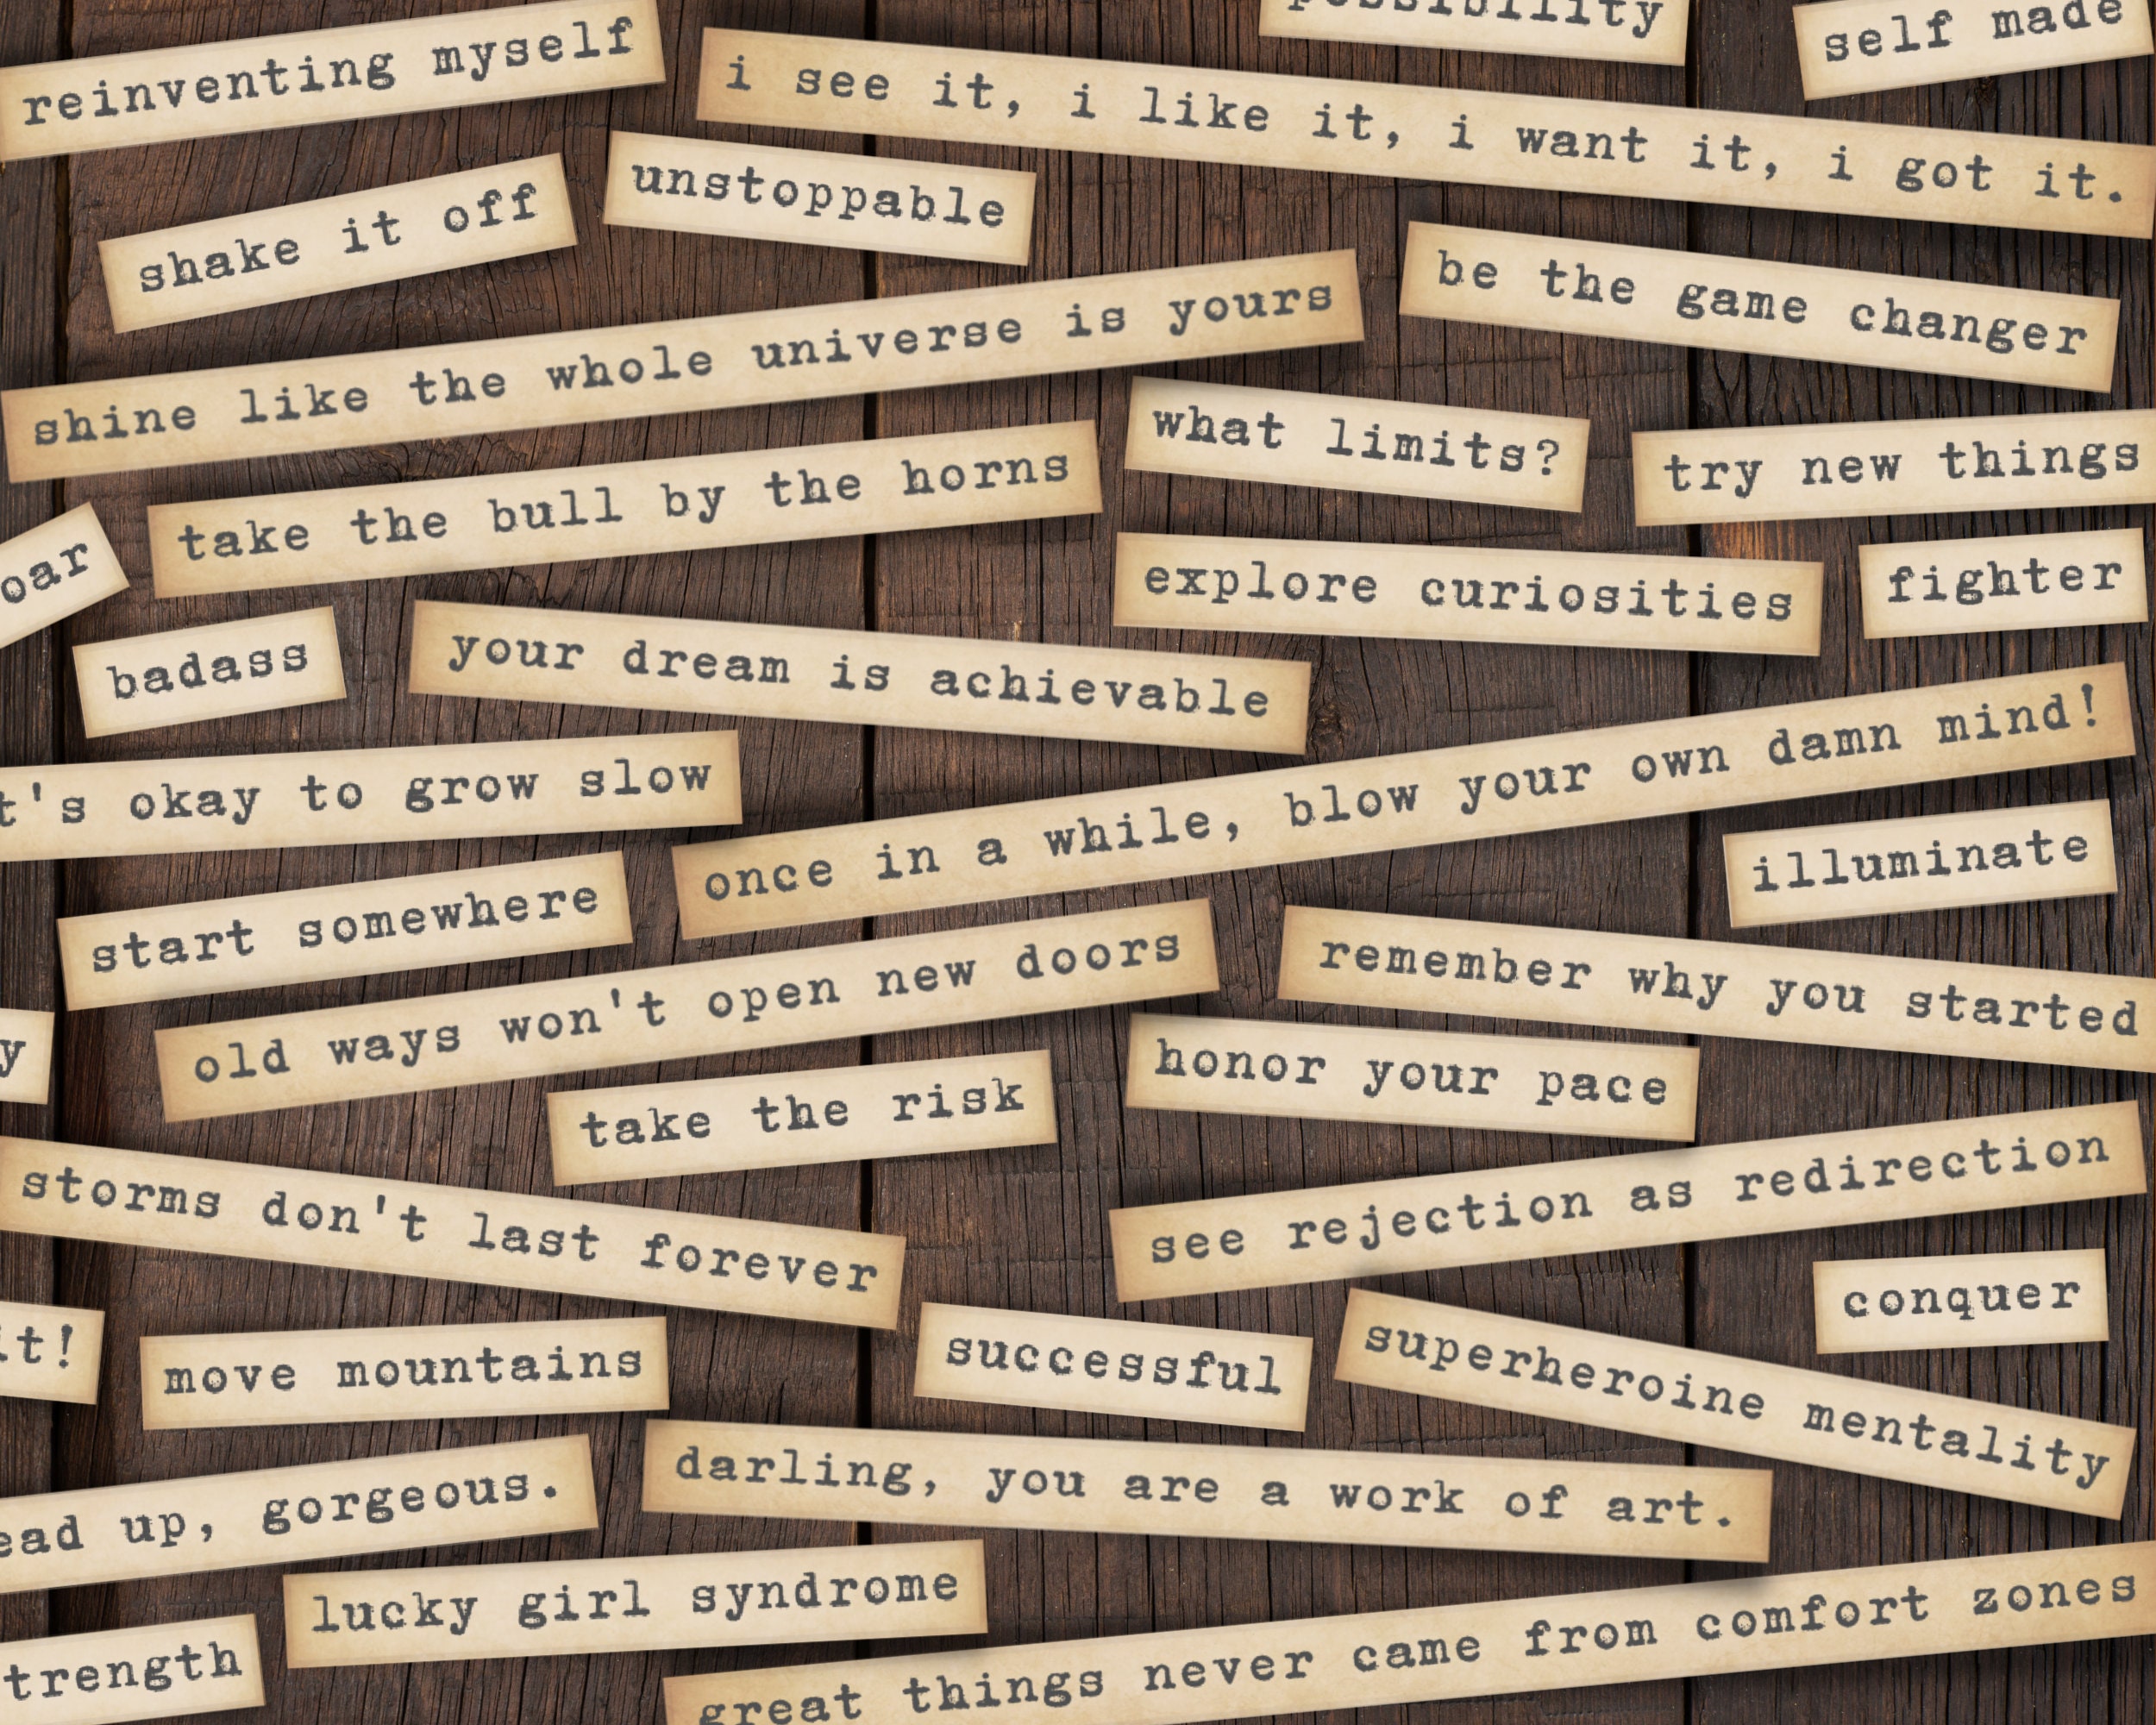 possibility
self made
reinventing myself
i see it, i like it, i want it, i got it.
unstoppable
shake it off
be the game changer
shine like the whole universe is yours
what limits?
try new things
take the bull by the horns
oar
explore curiosities
fighter
badass
your dream is achievable
once in a while, blow your own damn mind!
t's okay to grow slow
illuminate
start somewhere
old ways won't open new doors
remember why you started
y
honor your pace
take the risk
storms don't last forever
see rejection as redirection
conquer
it!
move mountains
successful
superheroine mentality
ead up, gorgeous.
darling, you are a work of art.
lucky girl syndrome
trength
great things never came from comfort zones